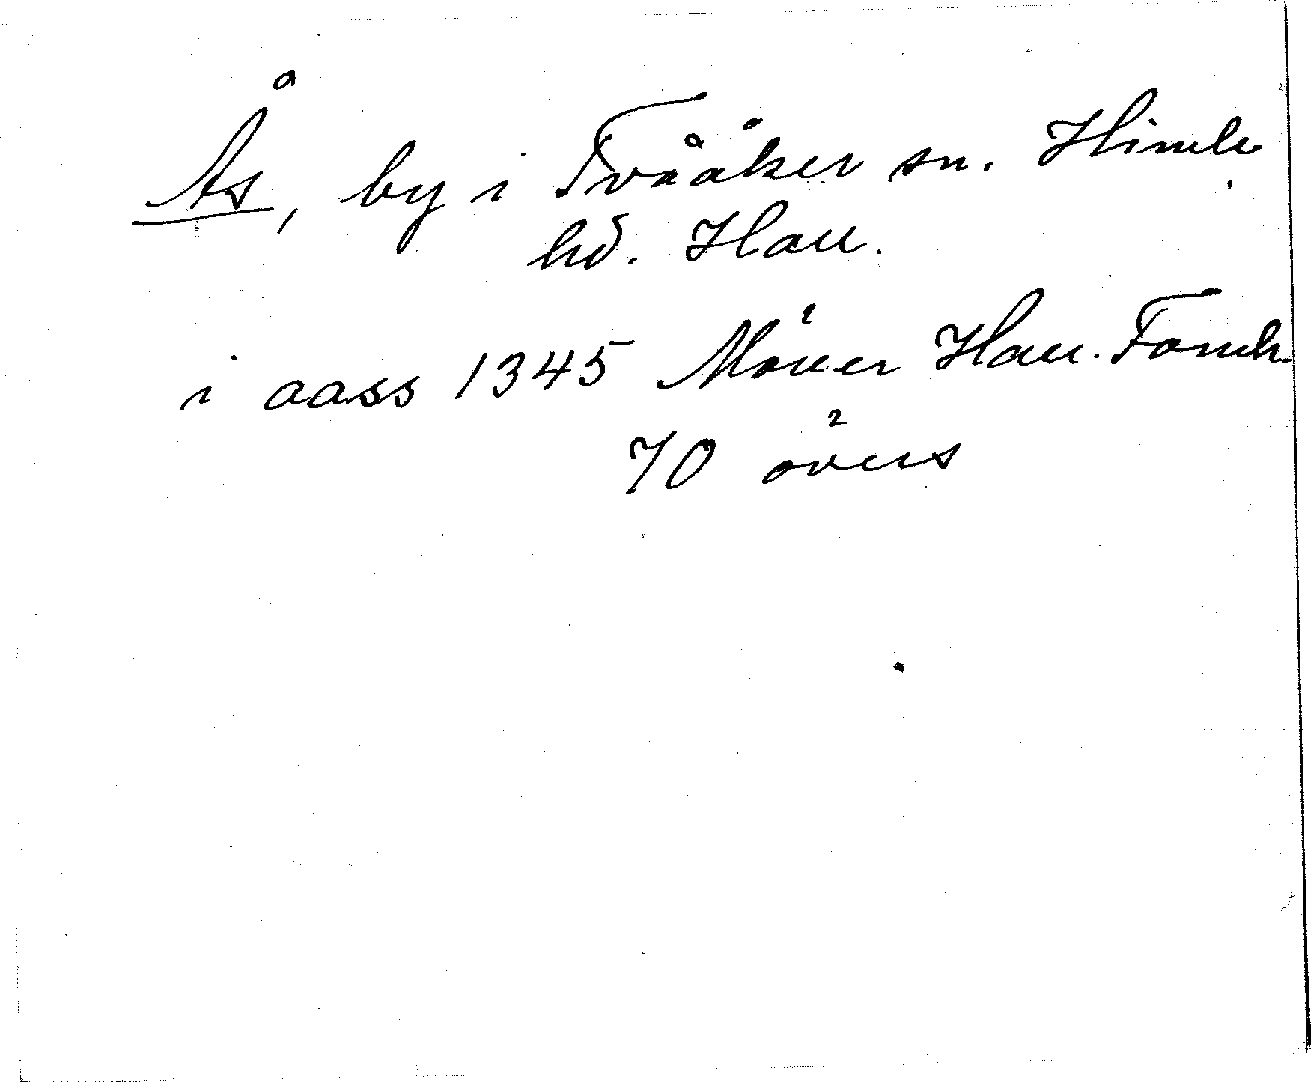 Ås, by i Tvååker sn. Himle
hd. Hall.
i aass 1345 Möller Hall. Fornh.
70 övers